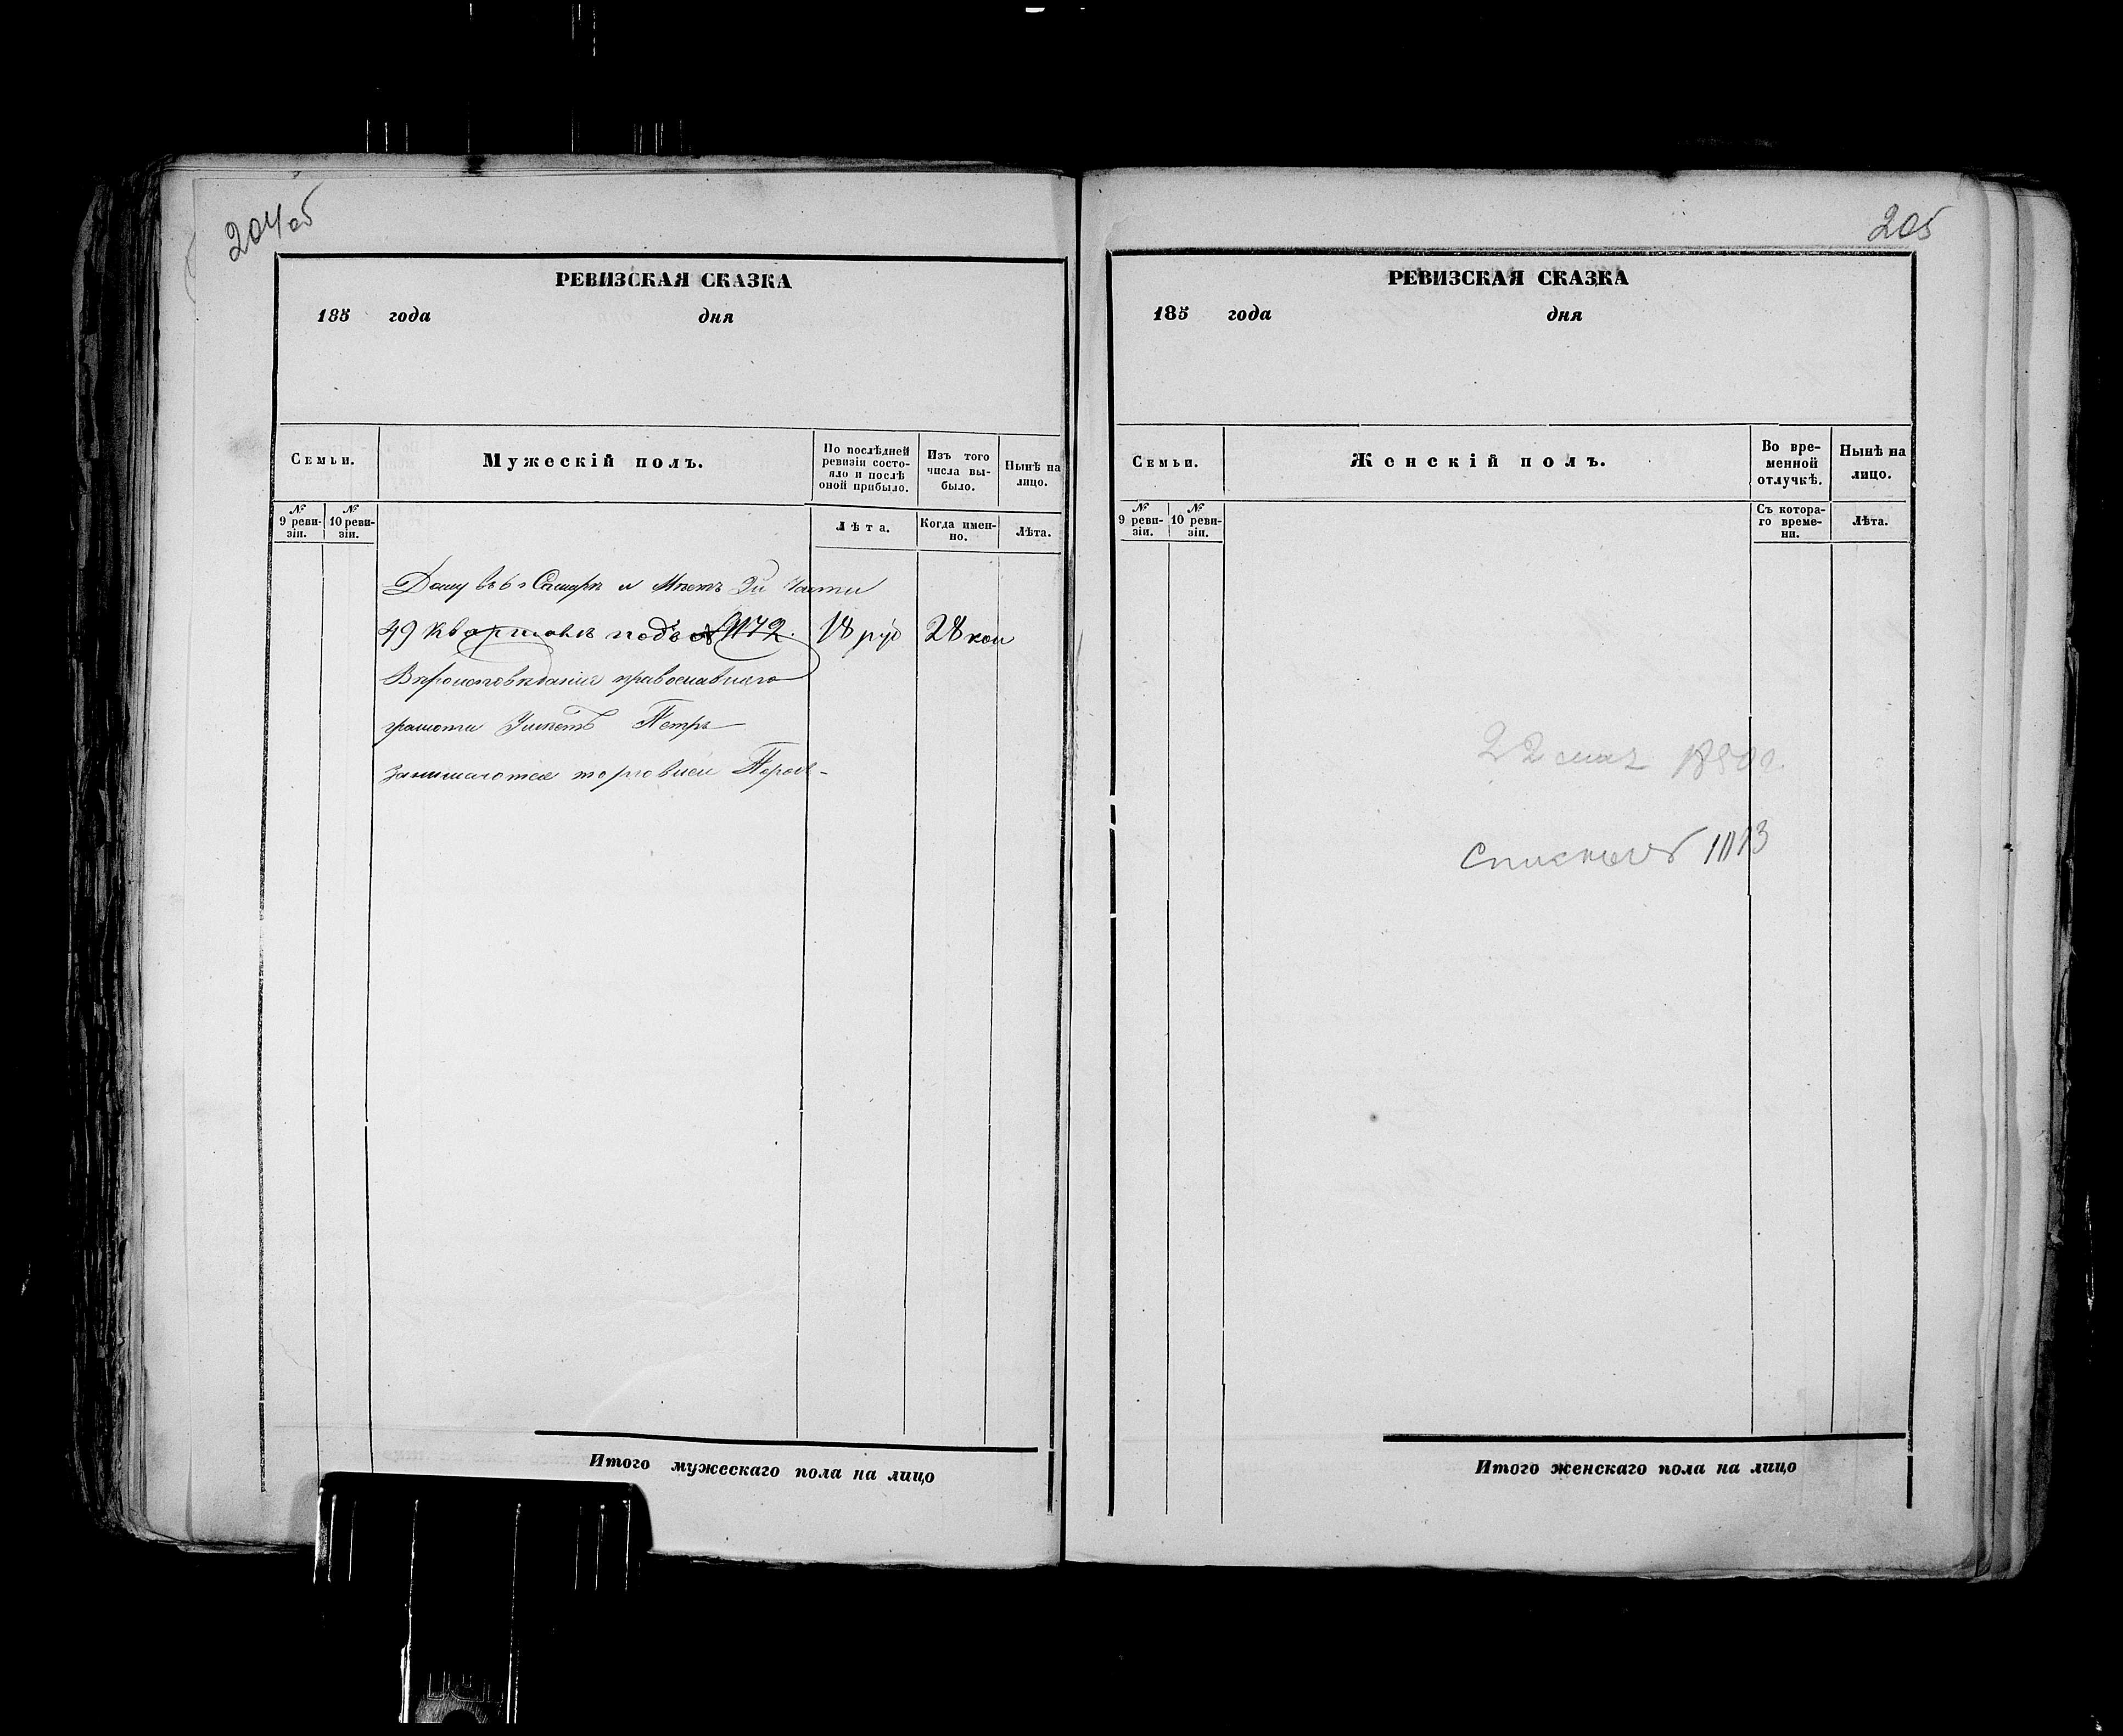 204об
РЕВИЗСКАЯ СКАЗКА
185 года дня
Семьи.
Мужескій полъ.
По послѣдней ревизіи состояло и послѣ оной прибыло.
Изъ того числа выбыло.
Нынѣ на лицо.
№ 9 ревизіи.
№ 10 ревизіи.
Лѣта.
Когда именно.
Лѣта.
Дому въ г Самарѣ и Мѣстъ 3й части
49 кварталѣ подъ № 1172. 18 руб 28 коп
Вѣроисповѣданія православнаго
грамоти Умѣетъ Петръ
занимаются торговлей
Итого мужескаго пола на лицо
205
РЕВИЗСКАЯ СКАЗКА
185 года дня
Семьи.
Женскій полъ.
Во временной отлучкѣ.
Нынѣ на лицо.
№ 9 ревизіи.
№ 10 ревизіи.
Съ котораго времени.
Лѣта.
22 мая 1850 г.
Итого женскаго пола на лицо